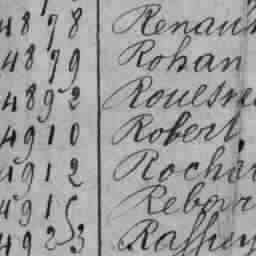 4878 Renau
4879 Rohan
4892 Rouesne
4910 Robert
4912 Rochar
4915 Rebour
4923 Raffrey